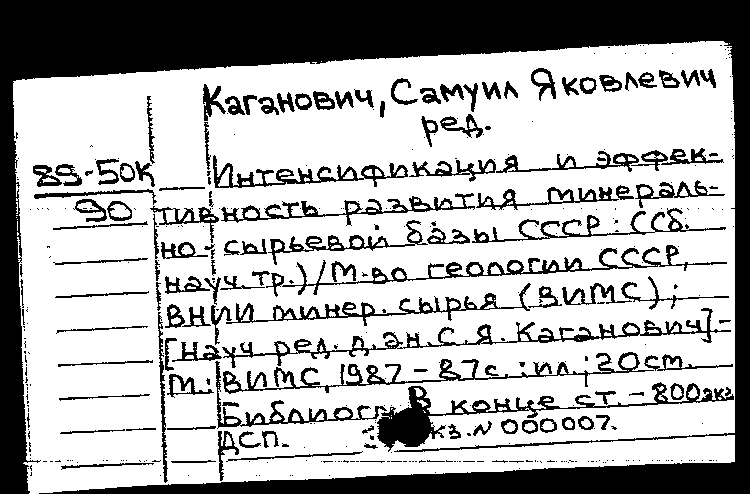 Каганович, Самуил Яковлевич
ред.
89-50К
90
Интенсификация и эффек-
тивность развития минераль-
но-сырьевой базы СССР: (Сб.
науч. тр.)/М-во геологии СССР,
ВНИИ минер. сырья (ВИМС);
[Науч ред. д. эн. С.Я. Каганович].-
М.: ВИМС, 1987 - 87с. : ил.; 20см.
Библиогр. В конце ст. - 800экз
ДСП. кз. N 000007.